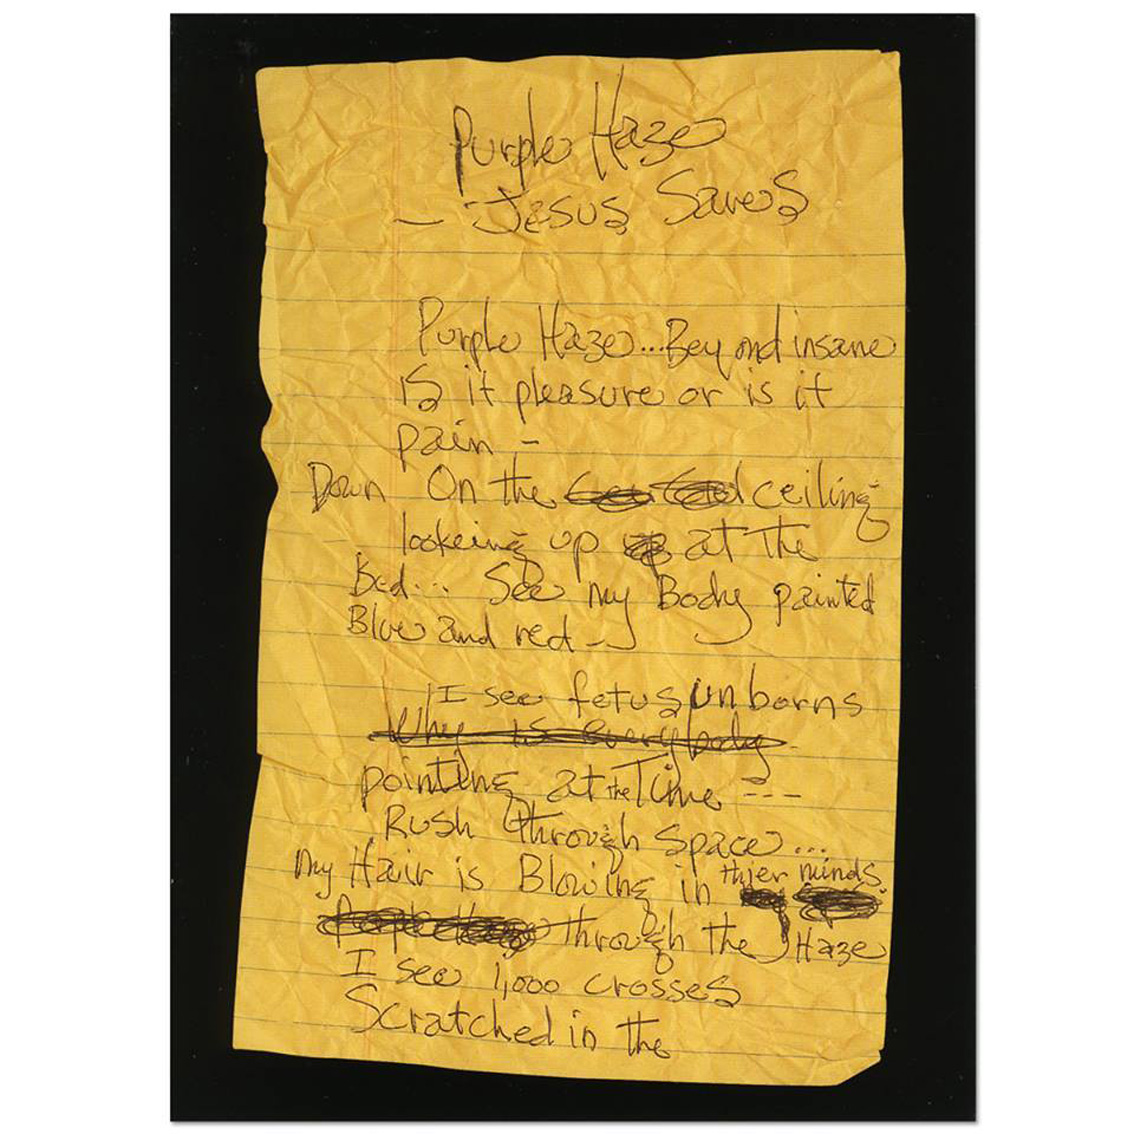 Purple Haze
— Jesus Saves
Purple Haze...Beyond insane
is it pleasure or is it
pain -
Down On the ceiling
lookeing up at the
Bed... See my Body painted
Blue and red -
I see fetus unborns
Why is everybody
pointing at the Time ---
Rush through space...
my Hair is Blowing in thier minds.
Purple Haze through the Haze
I see 1,000 crosses
Scratched in the